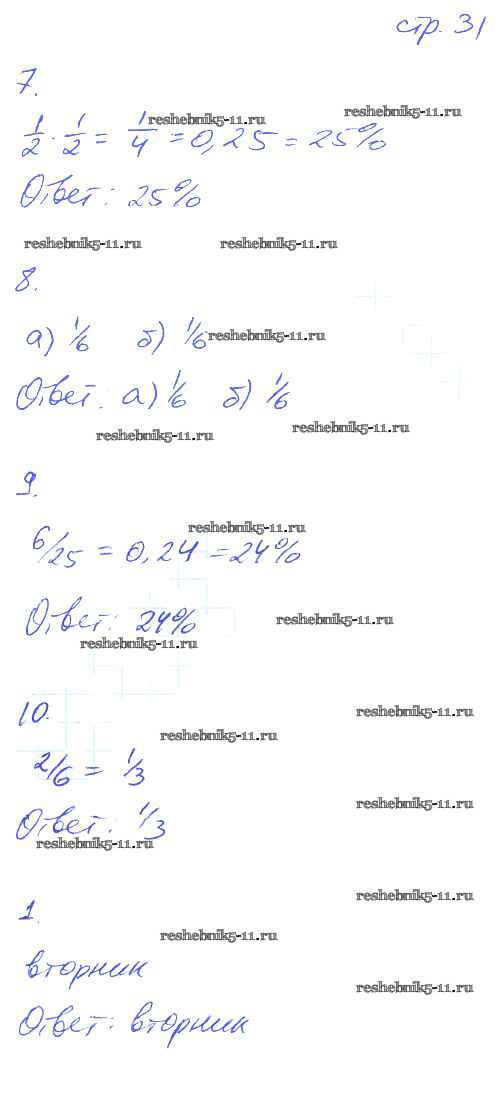 стр. 31
7.
1/2 · 1/2 = 1/4 = 0,25 = 25%
reshebnik5-11.ru reshebnik5-11.ru
Ответ: 25%
reshebnik5-11.ru reshebnik5-11.ru
8.
а) 1/6 б) 1/6
reshebnik5-11.ru
Ответ: а) 1/6 б) 1/6
reshebnik5-11.ru reshebnik5-11.ru
9.
reshebnik5-11.ru
6/25 = 0,24 = 24%
Ответ: 24%
reshebnik5-11.ru
reshebnik5-11.ru
10.
reshebnik5-11.ru
reshebnik5-11.ru
2/6 = 1/3
reshebnik5-11.ru
Ответ: 1/3
reshebnik5-11.ru
reshebnik5-11.ru
1.
reshebnik5-11.ru
вторник
reshebnik5-11.ru
Ответ: вторник